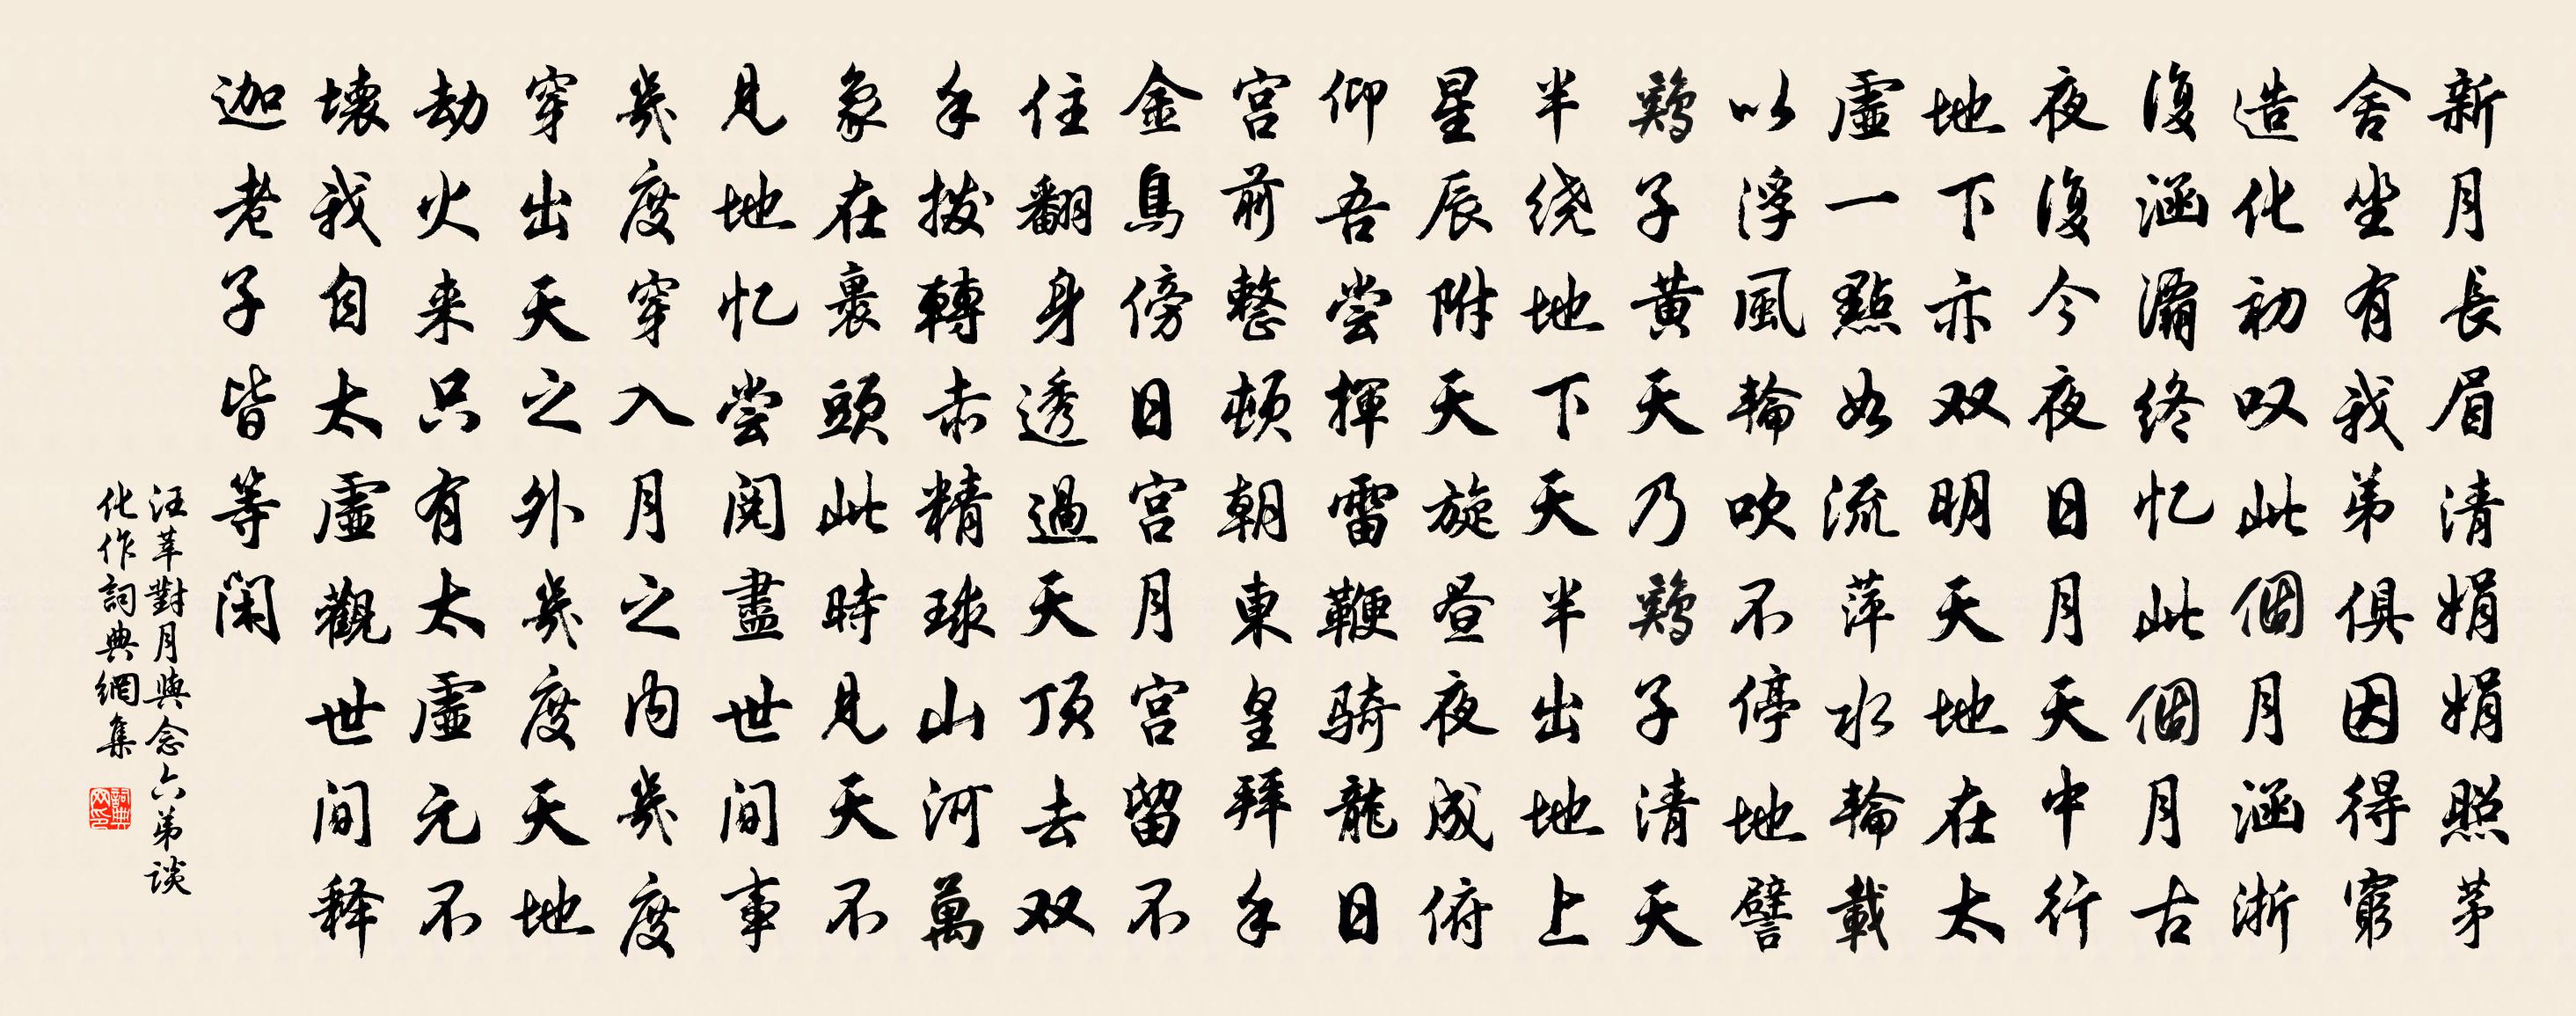 新月長眉清娟娟照茅
舍坐有我弟俱因得窮
造化初叹此個月涵浙
復涵灞終忆此個月古
夜復今夜日月天中行
地下亦双明天地在太
虛一點如流萍水輪載
以浮風輪吹不停地譬
鷄子黄天乃鷄子清天
半绕地下天半出地上
星辰附天旋昼夜成俯
仰吾尝揮雷鞭骑龍日
宫前整顿朝東皇拜手
金烏傍日宫月宫留不
住翻身透過天顶去双
手拨轉赤精球山河萬
象在裏頭此時見天不
見地忆尝阅盡世间事
幾度穿入月之内幾度
穿出天之外幾度天地
劫火来只有太虛元不
壊我自太虛觀世间释
迦老子皆等闲
汪莘對月與念六弟谈
化作詞典網集
詞典网印